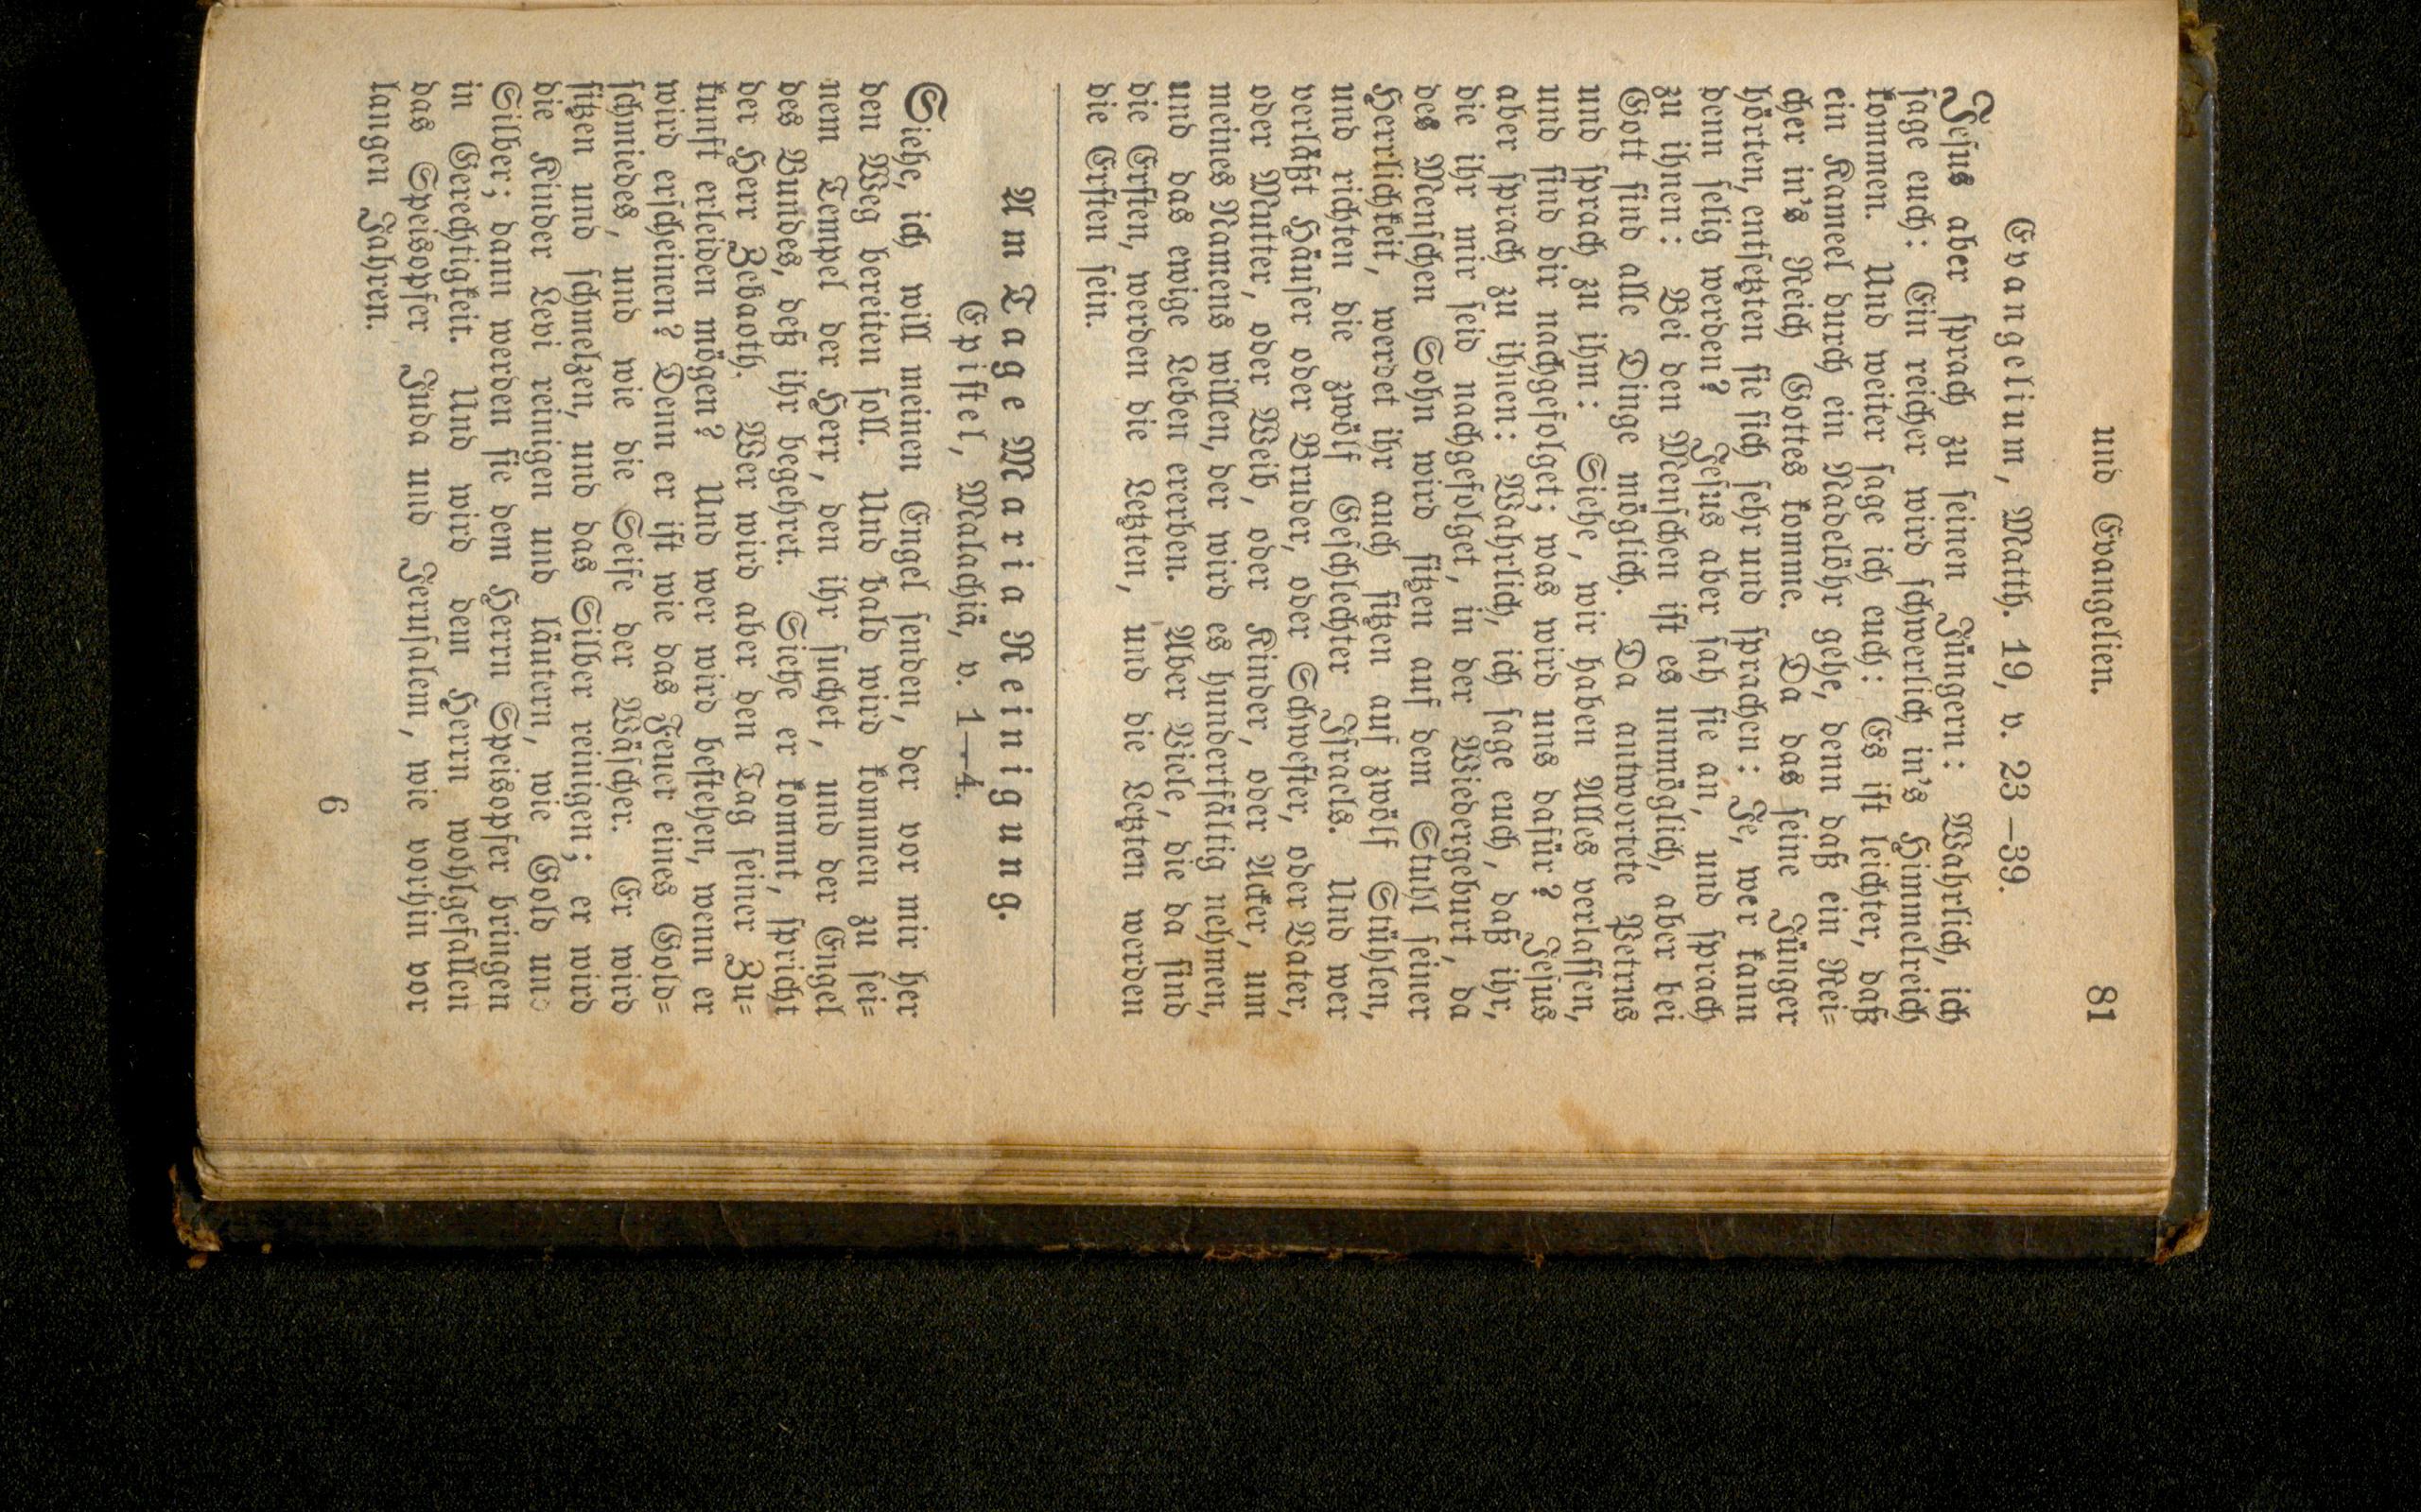 und Evangelien. 81
Evangelium, Matth. 19, v. 23—39.
Jesus aber sprach zu seinen Jüngern: Wahrlich, ich
sage euch: Ein reicher wird schwerlich in's Himmelreich
kommen. Und weiter sage ich euch: Es ist leichter, daß
ein Kameel durch ein Nadelöhr gehe, denn daß ein Rei=
cher in's Reich Gottes komme. Da das seine Jünger
hörten, entsetzten sie sich sehr und sprachen: Je, wer kann
denn selig werden? Jesus aber sah sie an, und sprach
zu ihnen: Bei den Menschen ist es unmöglich, aber bei
Gott sind alle Dinge möglich. Da antwortete Petrus
und sprach zu ihm: Siehe, wir haben Alles verlassen,
und sind dir nachgefolget; was wird uns dafür? Jesus
aber sprach zu ihnen: Wahrlich, ich sage euch, daß ihr,
die ihr mir seid nachgefolget, in der Wiedergeburt, da
des Menschen Sohn wird sitzen auf dem Stuhl seiner
Herrlichkeit, werdet ihr auch sitzen auf zwölf Stühlen,
und richten die zwölf Geschlechter Israels. Und wer
verläßt Häuser oder Bruder, oder Schwester, oder Vater,
oder Mutter, oder Weib, oder Kinder, oder Acker, um
meines Namens willen, der wird es hundertfältig nehmen,
und das ewige Leben ererben. Aber Viele, die da sind
die Ersten, werden die Letzten, und die Letzten werden
die Ersten sein.
Am Tage Mariä Reinigung.
Epistel, Malachiä, v. 1—4.
Siehe, ich will meinen Engel senden, der vor mir her
den Weg bereiten soll. Und bald wird kommen zu sei=
nem Tempel der Herr, den ihr suchet, und der Engel
des Bundes, deß ihr begehret. Siehe er kommt, spricht
der Herr Zebaoth. Wer wird aber den Tag seiner Zu=
kunft erleiden mögen? Und wer wird bestehen, wenn er
wird erscheinen? Denn er ist wie das Feuer eines Gold=
schmiedes, und wie die Seife der Wäscher. Er wird
sitzen und schmelzen, und das Silber reinigen; er wird
die Kinder Levi reinigen und läutern, wie Gold und
Silber; dann werden sie dem Herrn Speisopfer bringen
in Gerechtigkeit. Und wird dem Herrn wohlgefallen
das Speisopfer Juda und Jerusalem, wie vorhin vor
langen Jahren.
6